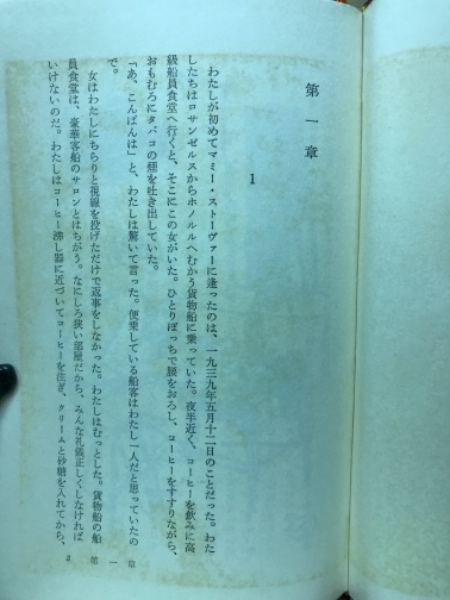 第一章
1
わたしが初めてマミー・ストーヴァーに逢ったのは、一九三九年五月十二日のことだった。わた
したちはロサンゼルスからホノルルへむかう貨物船に乗っていた。夜半近く、コーヒーを飲みに高
級船員食堂へ行くと、そこにこの女がいた。ひとりぼっちで腰をおろし、コーヒーをすすりながら、
おもむろにタバコの煙を吐き出していた。
「あ、こんばんは」と、わたしは驚いて言った。便乗している船客はわたし一人だと思っていたの
で。
女はわたしにちらりと視線を投げただけで返事をしなかった。わたしはむっとした。貨物船の船
員食堂は、豪華客船のサロンとはちがう。なにしろ狭い部屋だから、みんな礼儀正しくしなければ
いけないのだ。わたしはコーヒー沸し器に近づいてコーヒーを注ぎ、クリームと砂糖を入れてから、
3 第一章